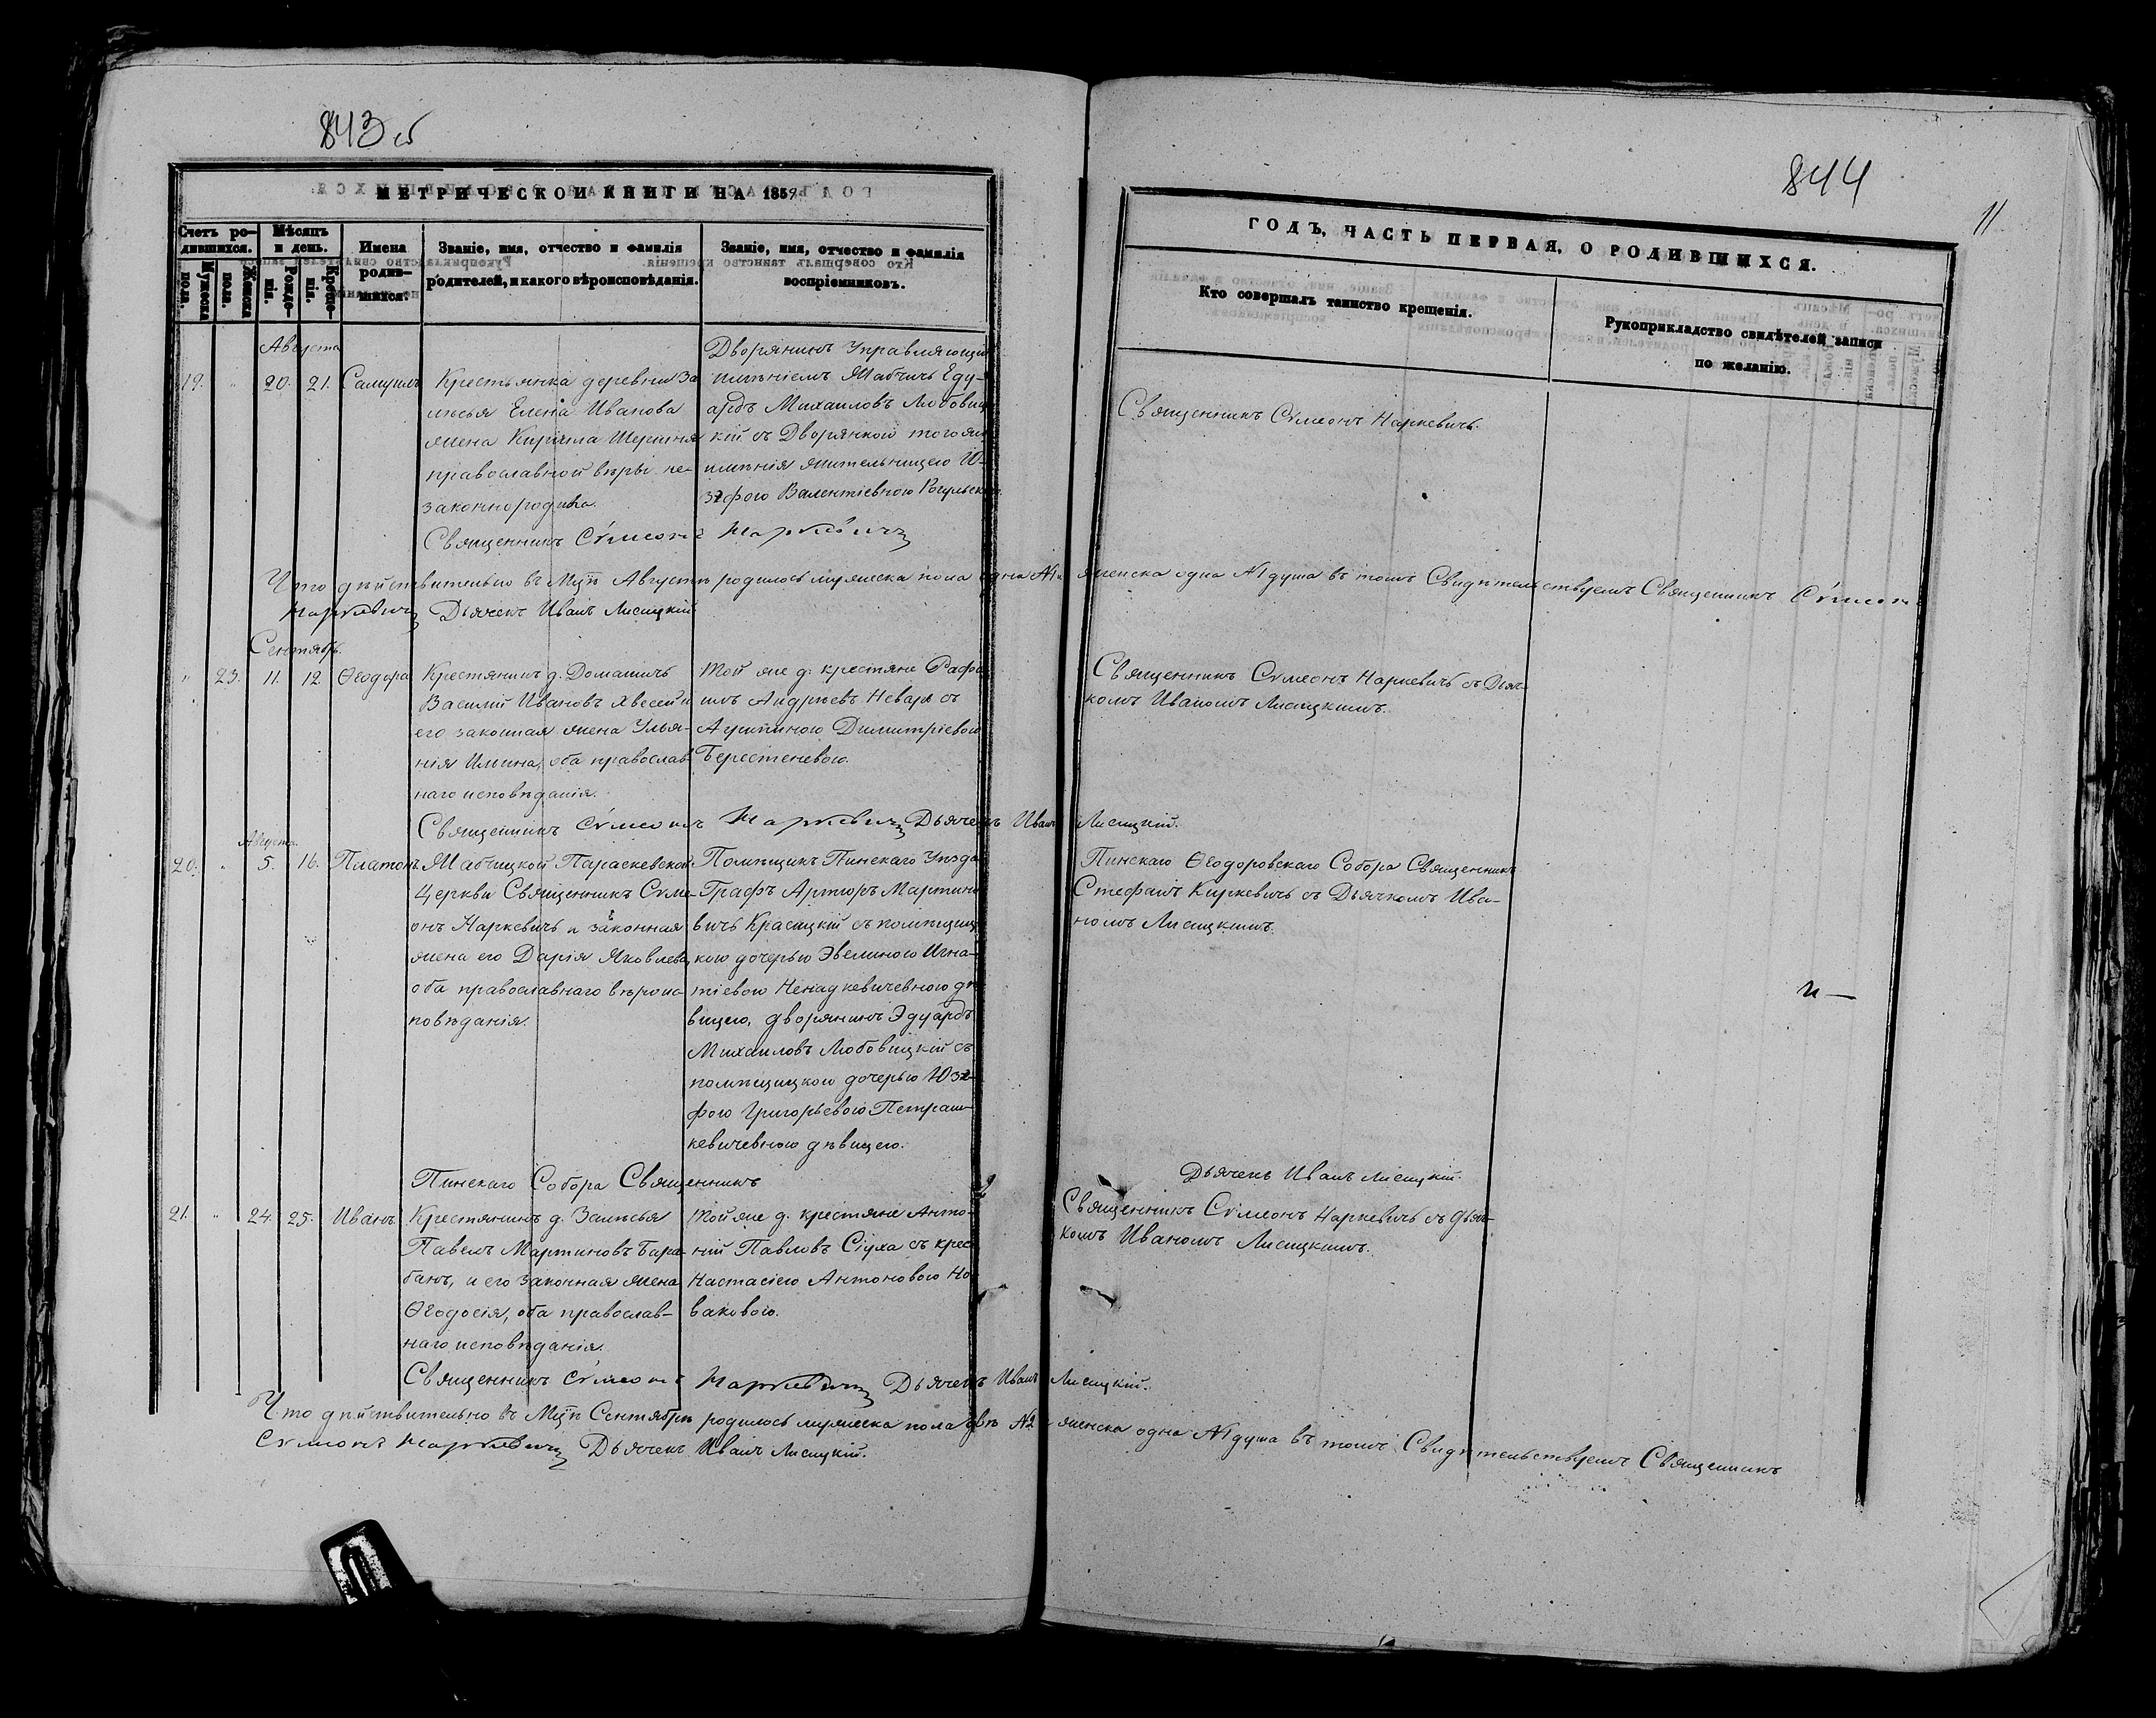 843 об
МЕТРИЧЕСКОЙ КНИГИ НА 1859
Счетъ ро-
дившихся.
Мужеска
пола.
Женска
пола.
Мѣсяцъ
и день.
Рожде-
нія.
Креще-
нія.
Имена
родив-
шихся.
Званіе, имя, отчество и фамилія
родителей, и какого вѣроисповѣданія.
Званіе, имя, отчество и фамилія
воспріемниковъ.
Августа
19. " 20. 21. Самуилъ
Крестьянка деревни За
лѣсья Елена Иванова
жена Кирилла
православной вѣры не-
законнородила.
Дворянинъ Управляющій
имѣніемъ Мабчичь Еду-
ардъ Михаиловъ Любовиц
кій съ Дворянкою тогожъ
имѣнія жительницею Ю-
зэфою Валентіевною
Священникъ Сѵмеонъ Наркевичъ
Что дѣйствительно въ Мцѣ Августѣ родилось мужеска пола одна №1 и женска одна №1 душа въ томъ Свидѣтельствуемъ Священникъ Сѵмеонъ
Наркевичъ Дьячекъ Иванъ Лисицкій
Сентябрь.
" 23. 11. 12 Ѳеодора
Крестянинъ д. Домашичь
Василій Ивановъ и
его законная жена Улья-
нія Ильина, оба православ
наго исповѣданія.
Той же д. крестяне Рафа
илъ Андрѣевъ Неваръ съ
Агрипиною Димитріевою
Берестеневою.
Священникъ Сѵмеонъ Наркевичъ Дьячекъ Иванъ Лисицкій.
Августа
20. " 5. 16. Платонъ.
Мабчицкой Параскевской
Церкви Священникъ Сѵме-
онъ Наркевичь и законная
жена его Дарія Яковлева,
оба православнаго вѣроис
повѣданія.
Помѣщикъ Пинскаго Уѣзда
Графъ Артюръ Мартино
вичъ Красицкій съ помѣщиц
кою дочерью Эвелиною Игна-
тіевою Ненадкевичевною дѣ
вицею, дворянинъ Эдуардъ
Михаиловъ Любовицкій съ
помѣщицкою дочерью Юзэ-
фою Григорьевою Петраш-
кевичевною дѣвицею.
Пинскаго Собора Священникъ
21. " 24. 25. Иванъ.
Крестянинъ д. Залѣсья
Павелъ Мартиновъ Бара-
банъ, и его законная жена
Ѳеодосія, оба православ-
наго исповѣданія.
Той же д. крестяне Анто-
ній Павловъ Сіуха съ крес
Настасіею Антоновою Но
ваковою.
Священникъ Сѵмеонъ Наркевичъ Дьячекъ Иванъ Лисицкій.
Что дѣйствительно въ Мцѣ Сентябрѣ родилось мужеска пола двѣ №2 и женска одна №1 душа въ томъ Свидѣтельствуемъ Священникъ
Сѵмеонъ Наркевичъ Дьячекъ Иванъ Лисицкій.
844
11
ГОДЪ, ЧАСТЬ ПЕРВАЯ, О РОДИВШИХСЯ.
Кто совершалъ таинство крещенія.
Рукоприкладство свидѣтелей записи
по желанію.
Священникъ Сѵмеонъ Наркевичъ.
Священникъ Сѵмеонъ Наркевичь съ Дьяч-
комъ Иваномъ Лисицкимъ.
Пинскаго Ѳеодоровскаго Собора Священникъ
Стефанъ Киркевичь съ Дьячкомъ Ива-
номъ Лисицкимъ.
Дьячекъ Иванъ Лисицкій.
Священникъ Сѵмеонъ Наркевичь съ Дьяч-
комъ Иваномъ Лисицкимъ.